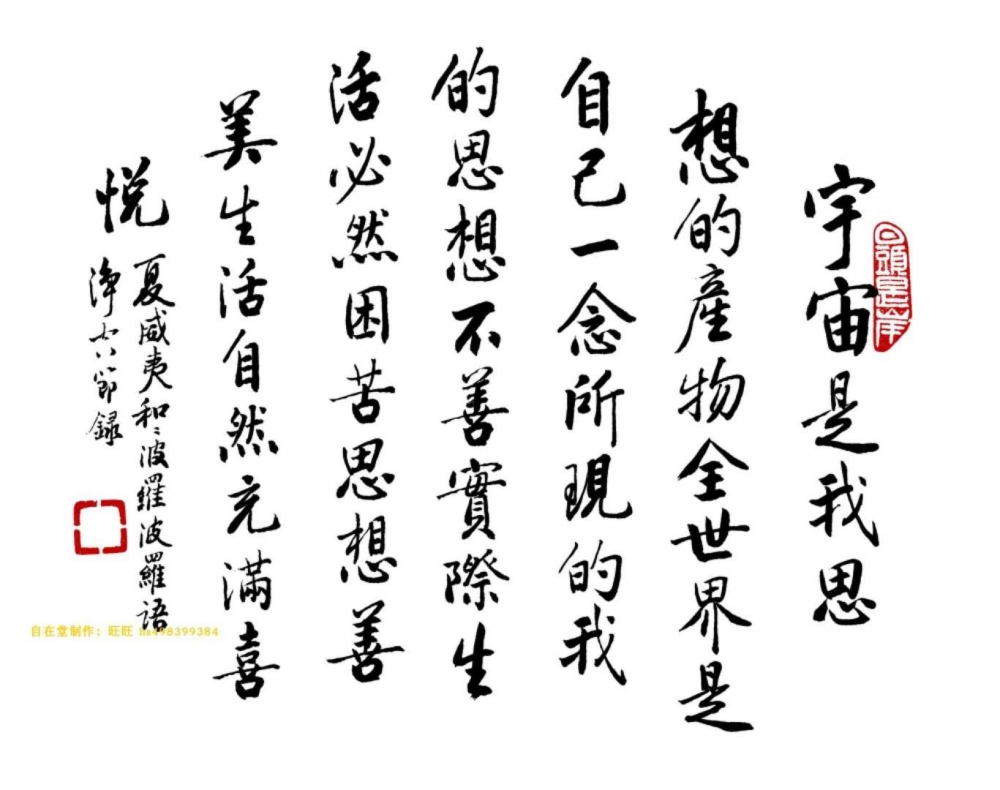 回頭是岸
宇宙是我思
想的產物全世界是
自己一念所現的我
的思想不善實際生
活必然困苦思想善
美生活自然充滿喜
悦
夏威夷和々波羅波羅語
淨 節録
自在堂制作: 旺旺